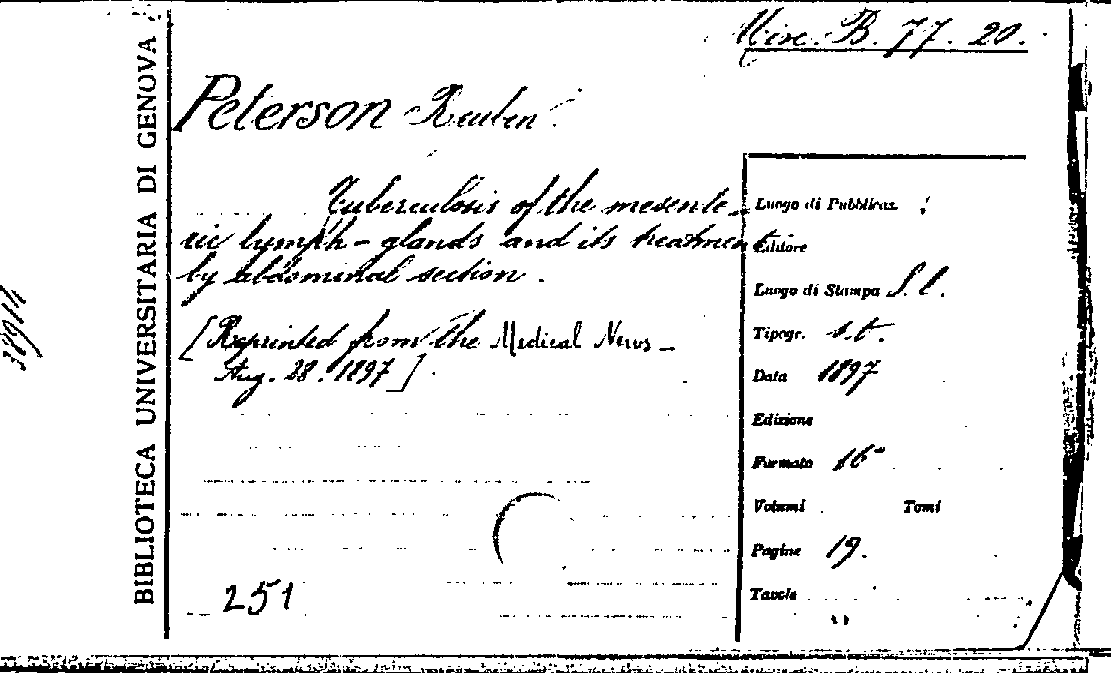 Misc. B. 77. 20.
BIBLIOTECA UNIVERSITARIA DI GENOVA
Peterson Reuben.
Tuberculosis of the mesente-
ric lymph-glands and its treatment
by abdominal section.
[Reprinted from the Medical News -
Aug. 28. 1897]
251
Luogo di Pubblicaz.
Editore
Luogo di Stampa S. l.
Tipogr. s. t.
Data 1897
Edizione
Formato 16°
Volumi Tomi
Pagine 19.
Tavole